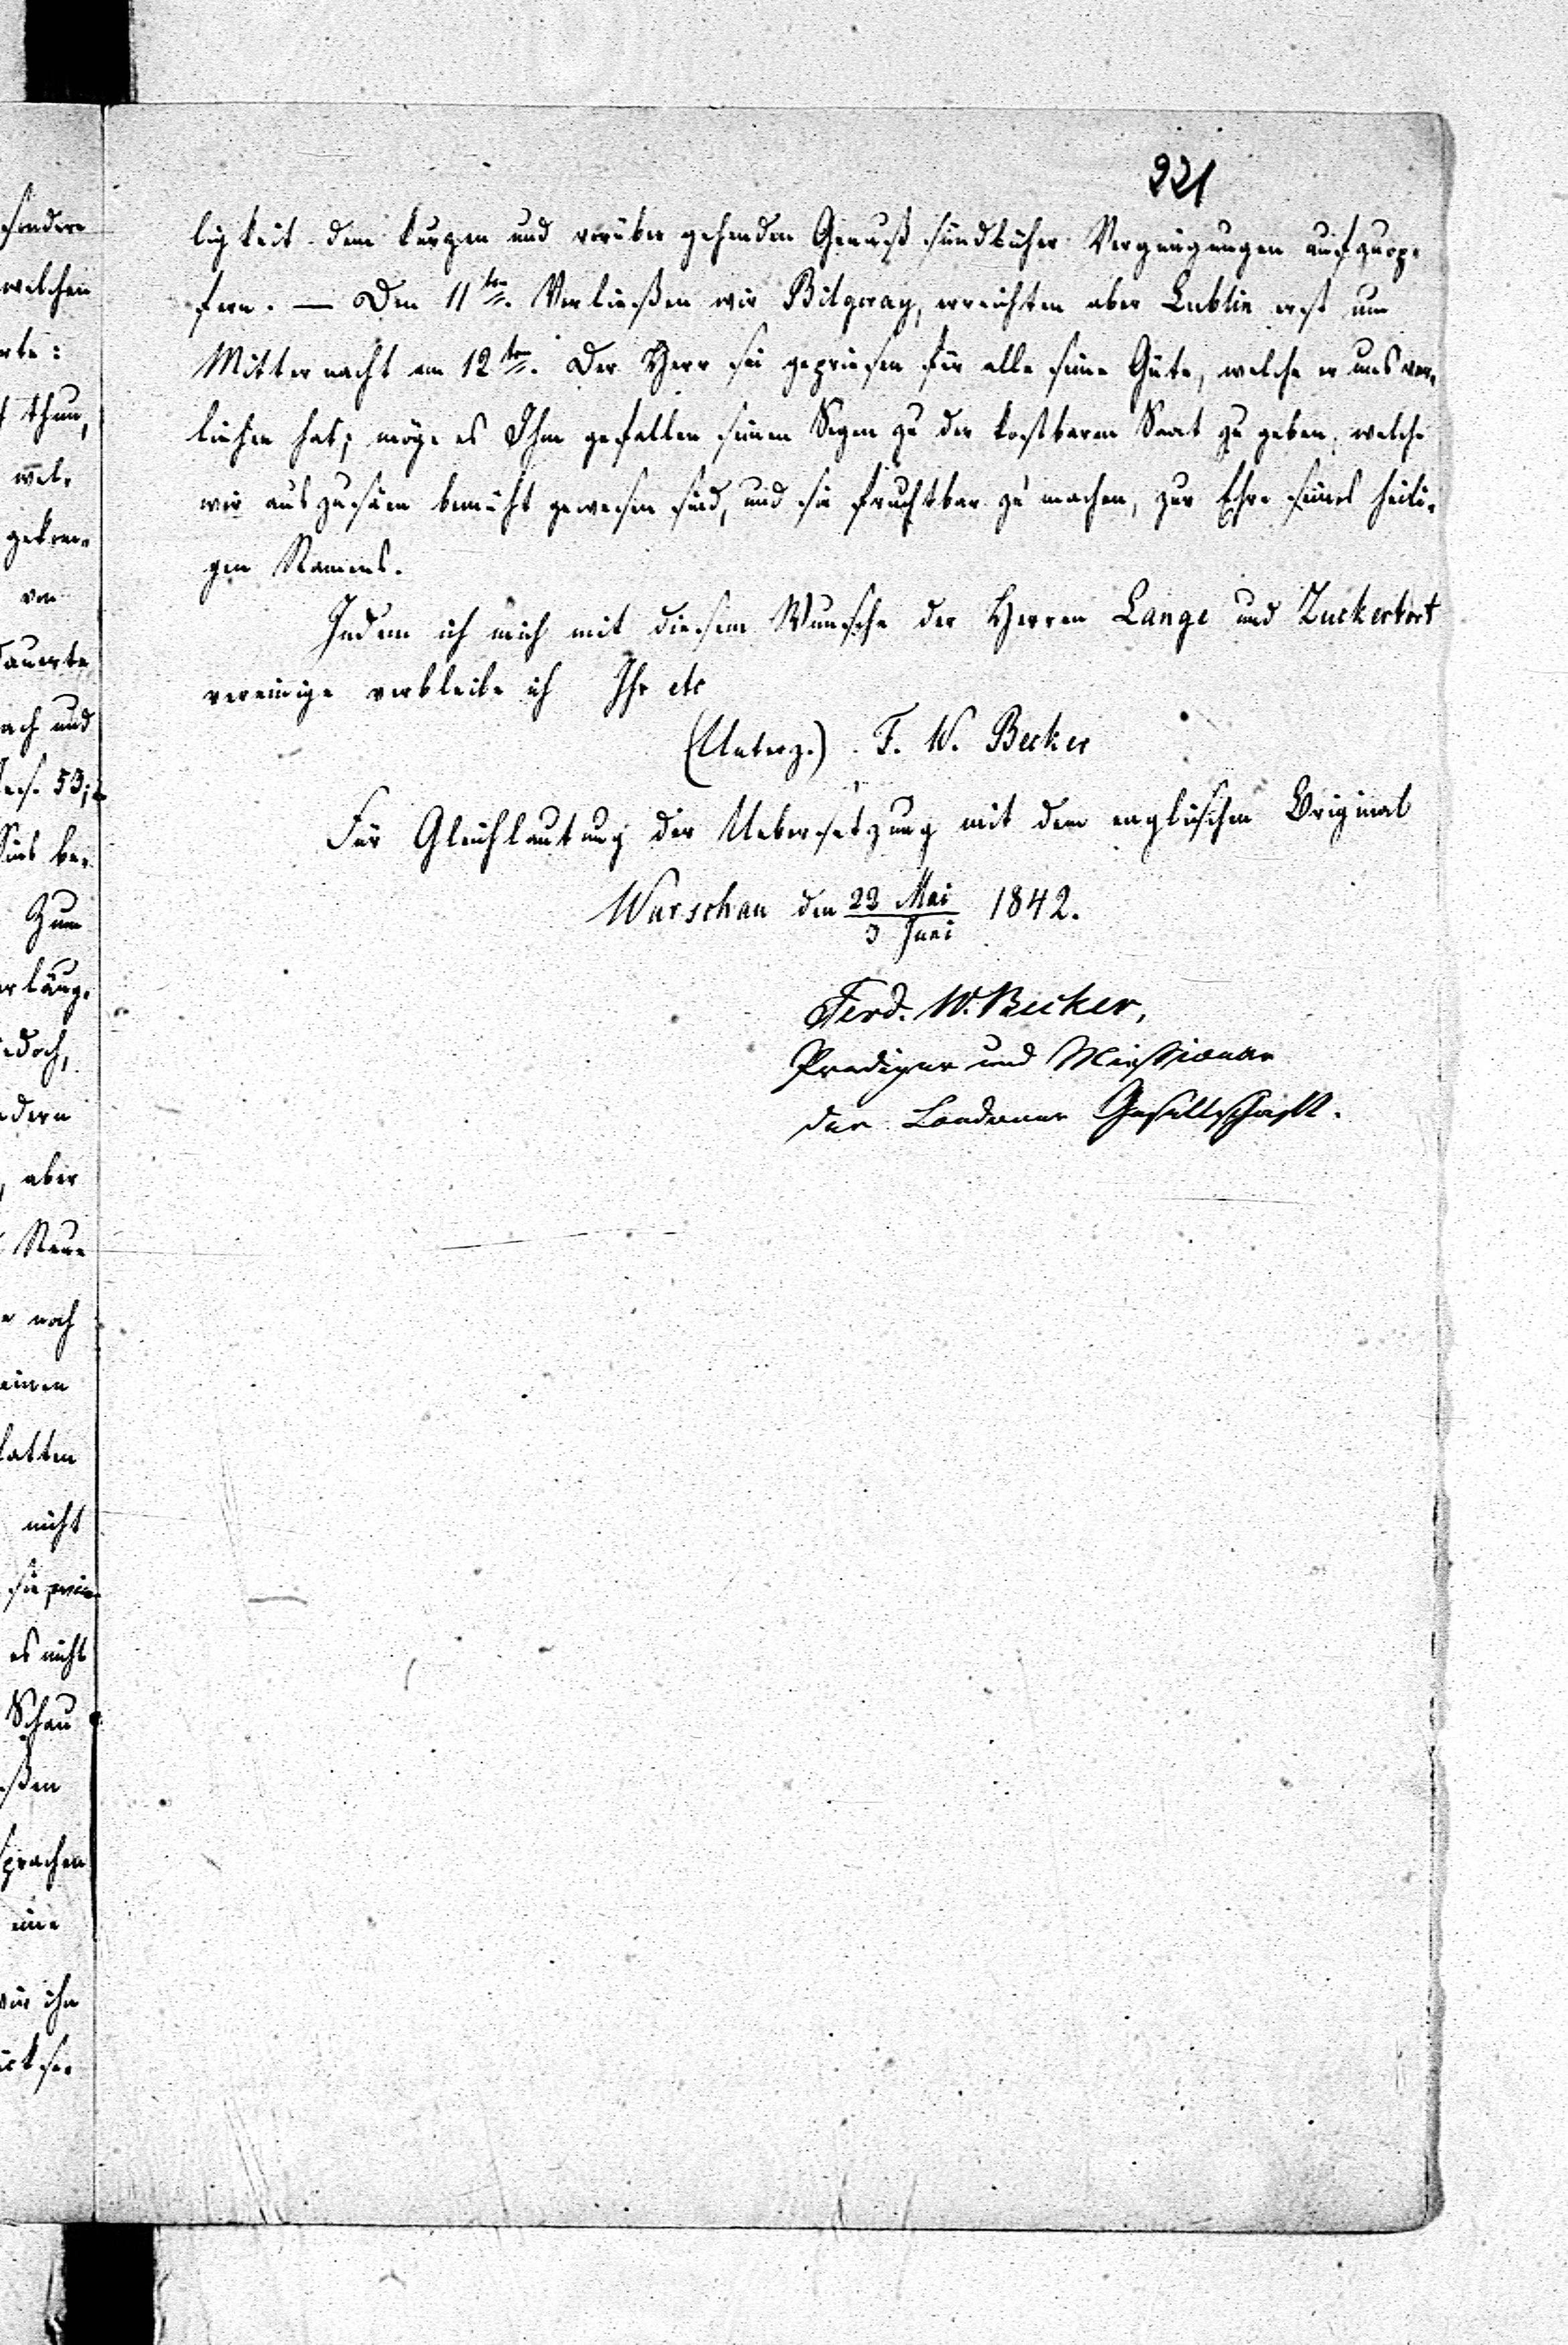 221
ligkeit dem kurzen und vorüber gehenden Genuß sündlicher Vergnügungen aufzuop-
fern. — Den 11ten. Verließen wir Bilgoray, erreichten aber Lublin erst um
Mitternacht am 12ten. Der Herr sei gepriesen für alle seine Güte, welche er uns ver-
liehen hat; möge es Ihm gefallen seinen Segen zu der kostbaren Saat zu geben, welche
wir auszusäen bemüht gewesen sind, und sie fruchtbar zu machen, zur Ehre seines heili-
gen Namens.
Indem ich mich mit diesem Wunsche der Herren Lange und Zuckertort
vereinige verbleibe ich Ihr etc
(Unterz.) F. W. Becker
Für Gleichlautung der Uebersetzung mit dem englischen Original
Warschau den 23 Mai / 3 Juni 1842.
Ferd. W. Becker,
Prediger und Missionar
der Londoner Gesellschaft.
welchen
thun,
wel-
von
ach und
53;
Zum
edoch,
aber
noch
einen
nicht
sie
es nicht
Schau
sprachen
eine
ihn